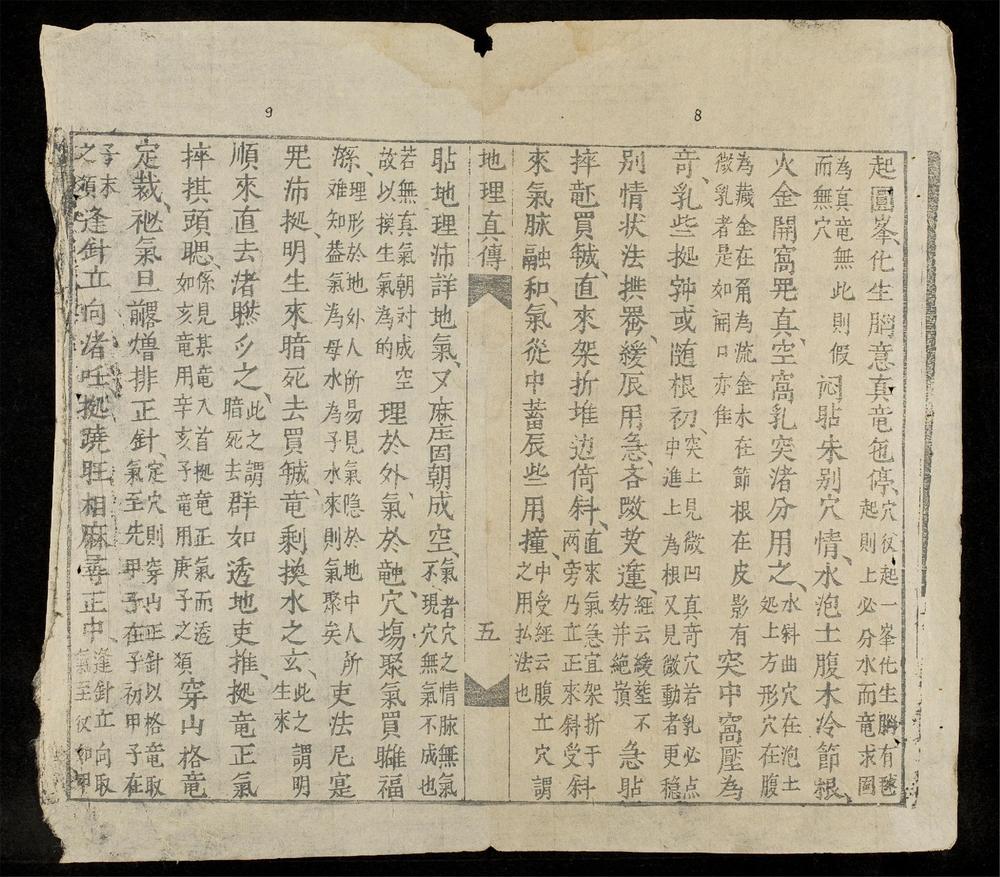 8
起圓峯、化生腦意真竜𫢩停、穴後起一峯化生腦、有毬
起則上必分水而竜求圓
為真竜無此則假
而無穴 闷貼朱別穴情、水泡土腹木冷節根、
火金開窩咒真、空窩乳突渚分用之、水斜曲穴在泡土
処上方形穴在腹
為蔵金在甬為流金水在節根在皮影有突中窩壓為
微乳者是如開口亦隹
竒、乳些拠𨉟或随根初、突上見微凹真竒穴若乳必点
中進上為根又見微動者更穏
別情状法撰、緩辰用急、吝湥𨔍、經云緩𦵔不急貼
妨并絶嶺
捽買、直來架折堆边倚斜、直來氣急宜架折于
两旁乃立正來斜受斜
來氣脉融和、氣從中蓄辰些用撞、中受經云腹立穴謂
之用払法也
地理真傳
五
9
貼地理沛詳地氣、又麻固朝成空、氣者穴之情脉無氣
不現穴無氣不成也
若無真氣朝对成空
故以揆生氣為的 理於外、氣於𥪝、穴塲聚氣買聯福
、理形於地外人所易見氣隐於地中人所
难知盖氣為母水為子水來則氣聚矣 吏法尼寔
咒沛拠、明生來暗死去買竜、剩換水之玄、此之謂明
生來
順來直去渚𥉫𡮈之、此之謂
暗死去 群如透地吏推、拠竜正氣
捽掑頭腮、係見某竜入首拠竜正氣而透
如亥竜用辛亥子竜用庚子之類 穿山格竜
定裁、氣旦𠓀𤐝排正針、定穴則穿山正針以格竜取
氣至先甲子在子初甲子在
子末
之類 逢針立向渚呠拠蹺旺相麻尋正中、逢針立向取
氣至仅如甲